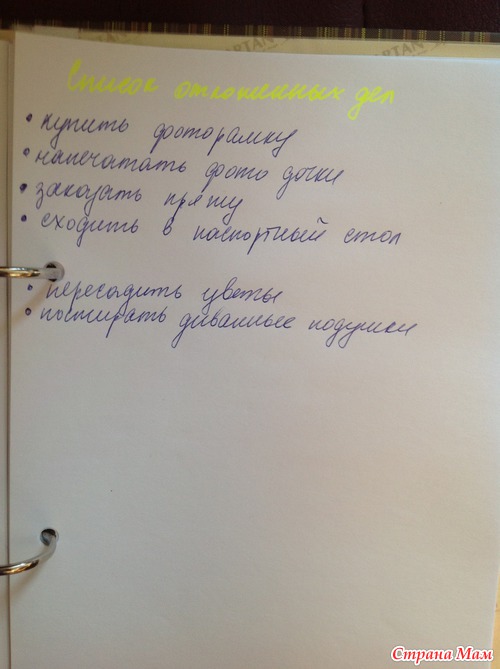 Список отложенных дел
• купить фоторамку
• напечатать фото дочки
• заказать пряжу
• сходить в паспортный стол
• пересадить цветы
• постирать диванные подушки
Страна Мам